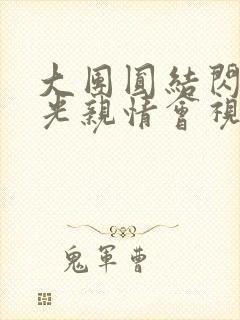 大團圓結閃
光親情會視
鬼軍曹